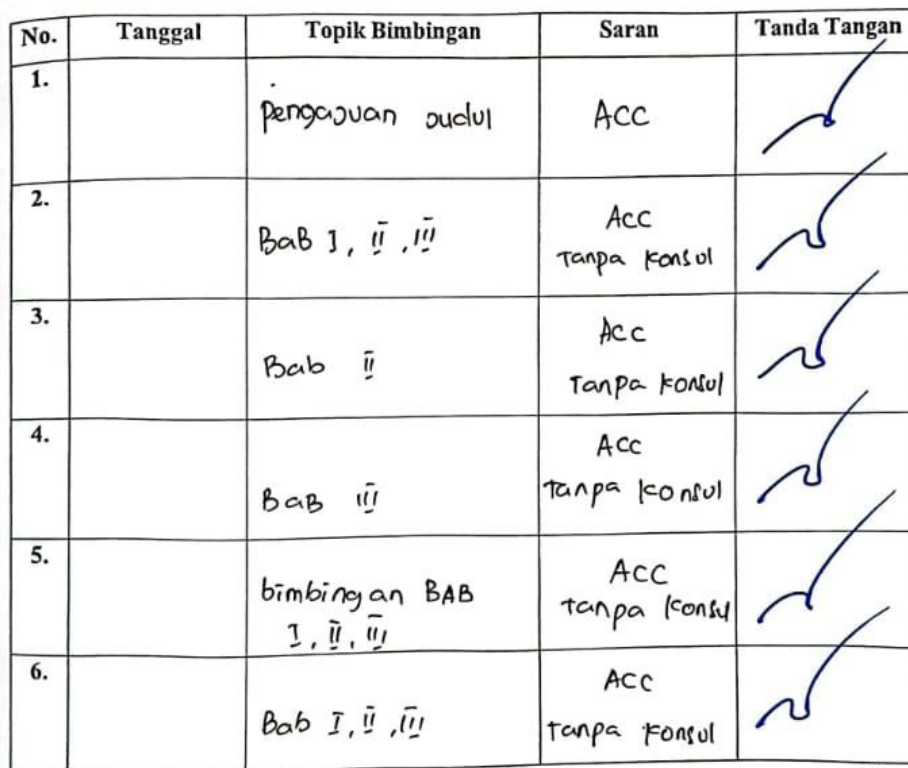 No. Tanggal Topik Bimbingan Saran Tanda Tangan
1. Pengajuan Judul ACC
2. BaB I, II, III ACC
Tanpa Konsul
3. Bab II ACC
Tanpa Konsul
4. BaB III ACC
tanpa Konsul
5. bimbingan BAB ACC
I, II, III tanpa Konsul
6. Bab I, II, III ACC
tanpa Konsul